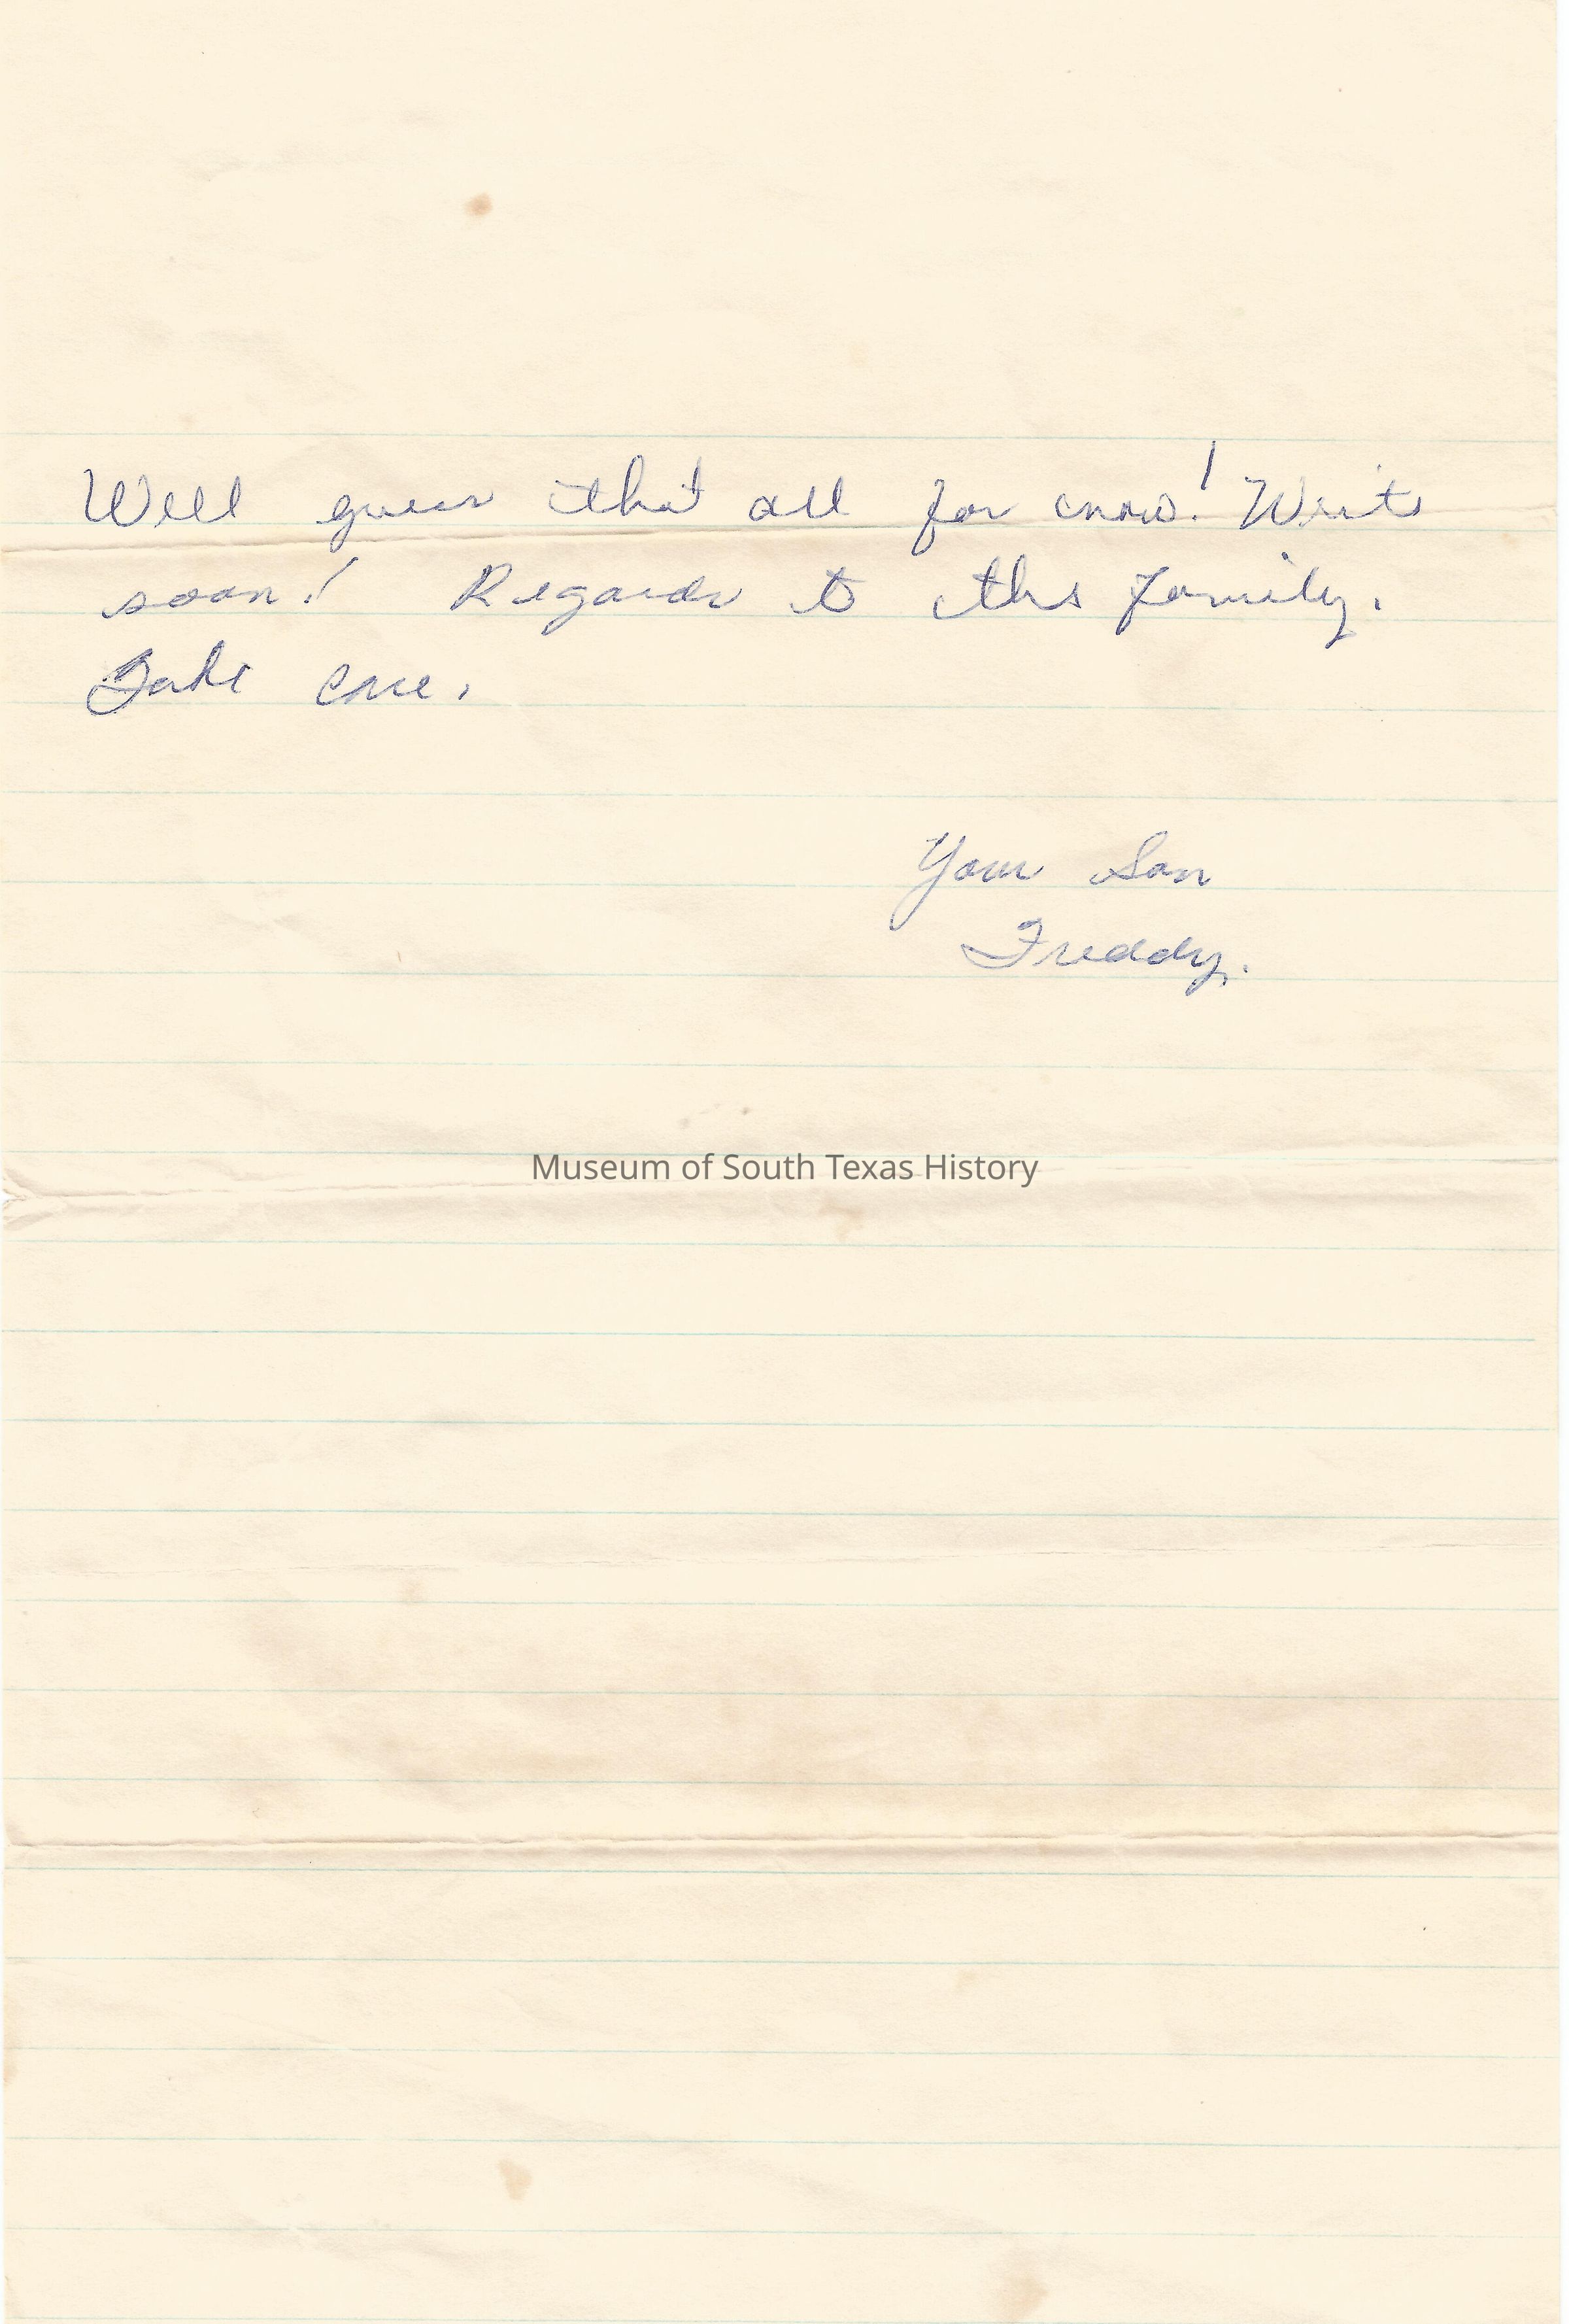 Well guess that all for now! Write
soon! Regards to the family.
Take care.
Your Son
Freddy.
Museum of South Texas History